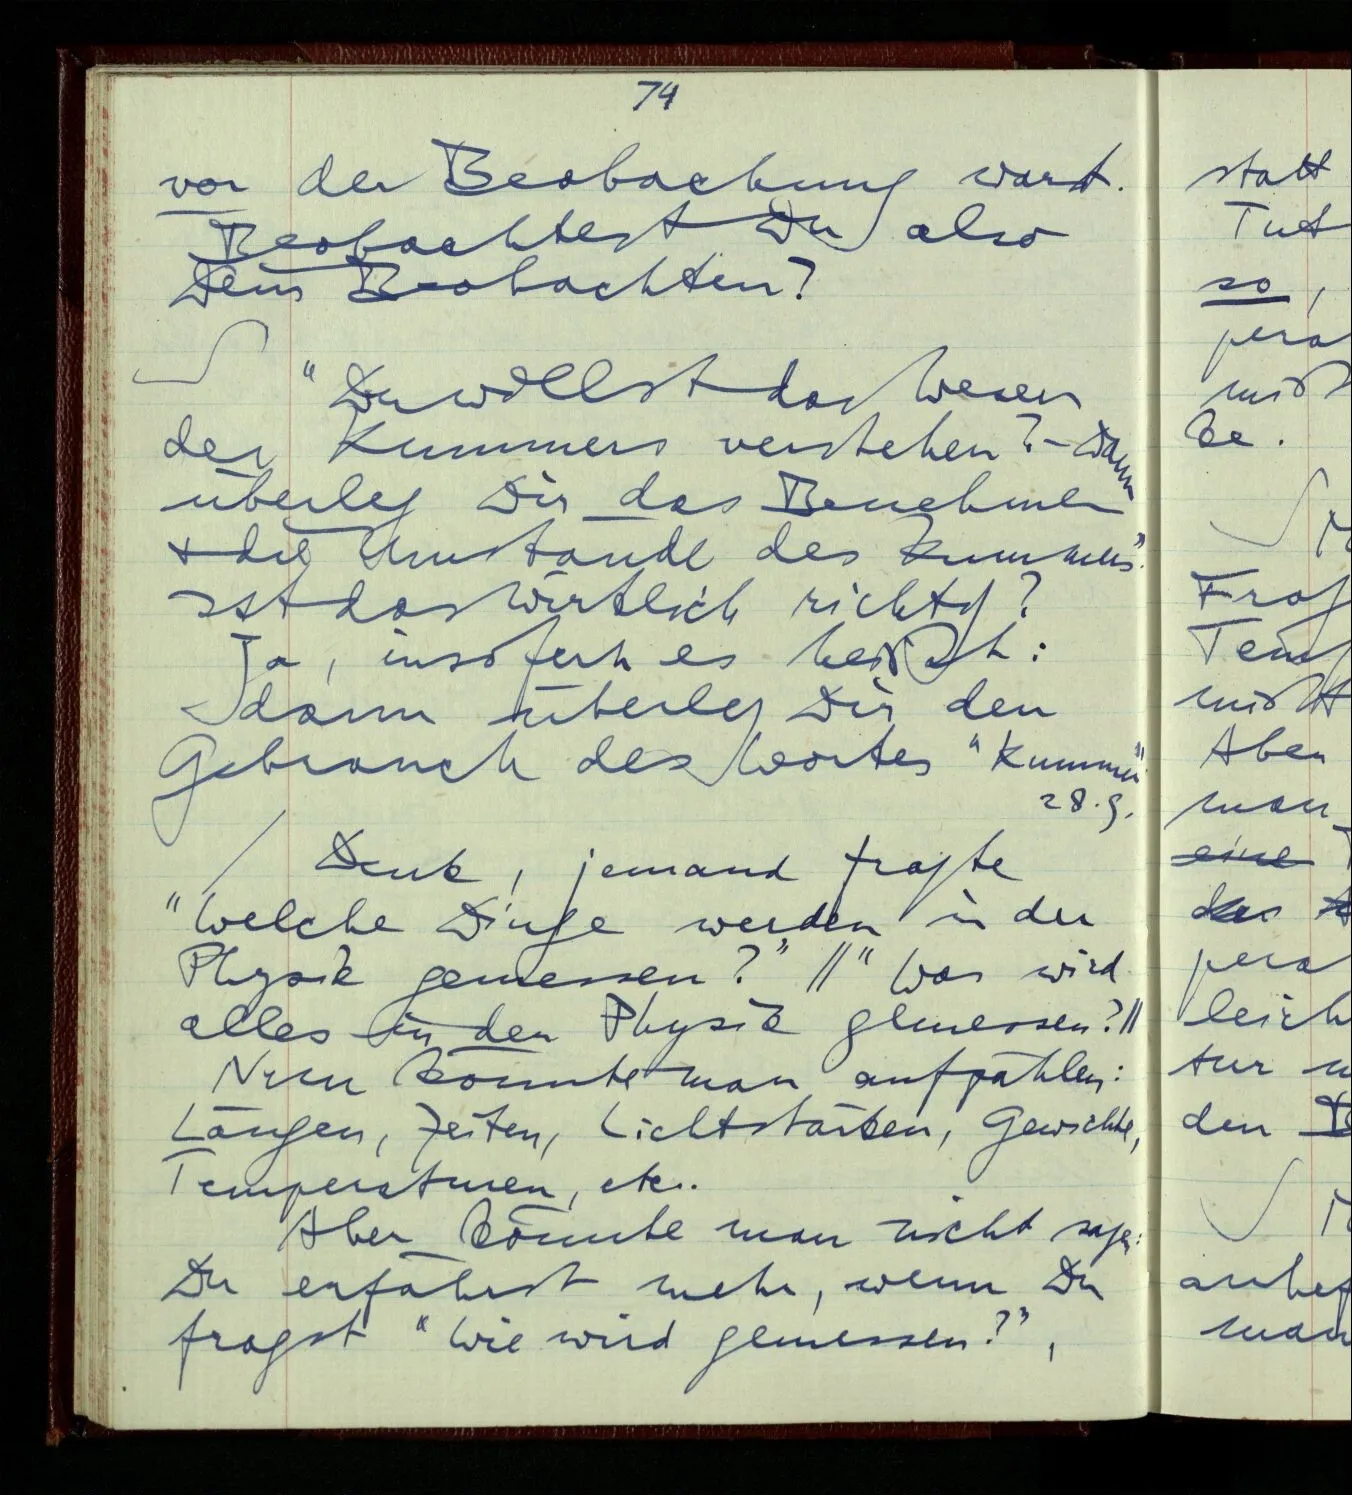 74
vor der Beobachung warst.
Beobachtest Du also
Dein Beobachten?
"Du willst das Wesen
des Kummers verstehen? – Dann
überleg Dir das Benehmen
+ die Umstände des Kummers".
Ist das wirklich richtig?
Ja, insofern es heißt:
dann überleg Dir den
Gebrauch des Wortes "Kummer"
28.9.
/ Denk, jemand fragte
"Welche Dinge werden in der
Physik gemessen?" // "Was wird
alles in der Physik gemessen? //
Nun könnte man aufzählen:
Längen, Zeiten, Lichtstärken, Gewichte,
Temperaturen, etc..
Aber könnte man nicht sagen:
Du erfährst mehr, wenn Du
fragst "Wie wird gemessen?",
statt
Tut
so,
pera
mißt
be.
Frag
Temp
mißt
Aber
man
eine
des
pera
leich
tur
den
anbef
man